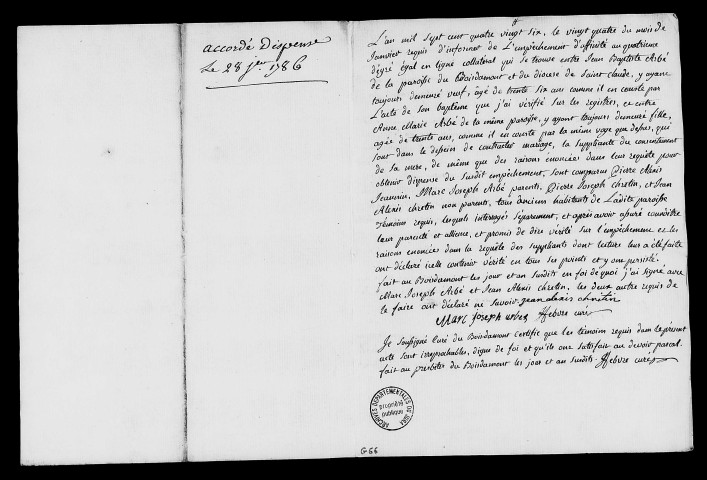 accordé Dispense
Le 28 Jer 1786
L'an mil sept cent quatre vingt six, le vingt quatre du mois de
Janvier requis d'informer de L'empêchement d'affinité au quatrieme
dégré égal en ligne collateral qui se trouve entre Jean Baptiste Arbé
de la paroisse du Boisdamont et du diocese de Saint Claude, y ayant
toujours demeuré veuf, âgé de trente six ans comme il en conste par
L'acte de son baptême que j'ai vérifié sur les registres, et entre
Anne Marie Arbé de la même paroisse, y ayant toujours demeuré fille,
agée de trente ans, comme il en conste par la même voye que dessus, qui
sont dans le dessein de contracter mariage, la suppliante du consentement
de sa mere, de même que des raisons énoncées dans leur requête pour
obtenir dispense du susdit empêchement, sont comparus Pierre Alexis
Jeannin, Marc Joseph Arbé parents, Pierre Joseph chretin, et Jean
Alexis chretin non parents, tous anciens habitants de Ladite paroisse
témoins requis, lesquels interrogés séparement, et après avoir assuré connoître
leur parenté et alliance, et promis de dire vérité sur l'empêchement et les
raisons énoncées dans la requête des suppliants dont lecture leur a été faite
ont déclaré icelle contenir vérité en tous ses points et y ont persisté.
fait au Boisdamont les jour et an susdits en foi de quoi j'ai signé avec
Marc Joseph Arbé et Jean Alexis chretin, les deux autres requis de
le faire ont déclaré ne savoir jean alexis chretin
Marc Joseph arbez Lefebvre curé
Je soussigné curé du Boisdamont certifie que les témoins requis dans le present
acte sont irreprochables, dignes de foi et qu'ils ont satisfait au devoir pascal.
fait au presbitere du Boisdamont les jour et an susdits. Lefebvre curé
ARCHIVES DÉPARTEMENTALES DU JURA
propriété
publique
G 66